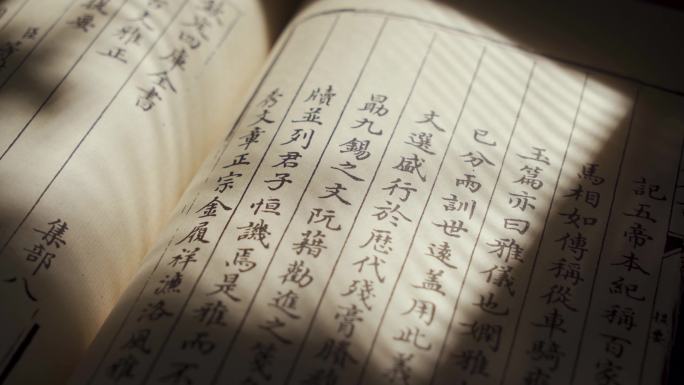 記五帝本紀稱百家
馬相如傳稱從車騎
玉篇亦曰雅儀也嫻雅
已分兩訓世遠蓋用此義
文選盛行於歷代殘膏賸
勗九錫之文阮藉勸進之箋
牘並列君子恒譏焉是雅而不
秀文章正宗金履祥濂洛風雅
欽定四庫全書 集部八
古文雅正
提要
臣